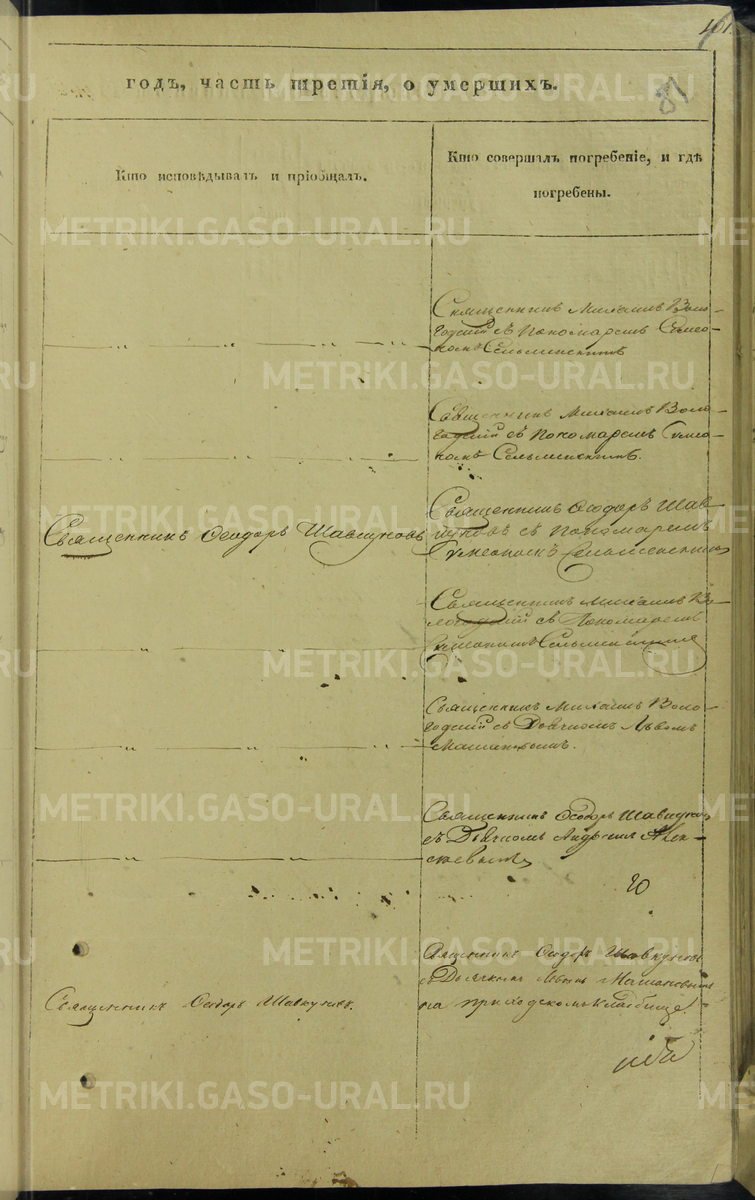 101.
годъ, часть третія, о умершихъ.
81
Кто исповѣдывалъ и пріобщалъ.
Кто совершалъ погребеніе, и гдѣ
погребены.
Священникъ Михаилъ Воло-
годскій съ Пономаремъ Симео-
номъ Сельменскимъ
Священникъ Михаилъ Воло-
годскій съ Пономаремъ Симео-
номъ Сельменскимъ.
Священникъ Ѳеодоръ Шавкуновъ
Священникъ Ѳеодоръ Шав-
куновъ съ Пономаремъ
Симеономъ Сельменскимъ
Священникъ Михаилъ Во-
логодскій съ Пономаремъ
Симеономъ Сельменскимъ
Священникъ Михаилъ Воло-
годскій съ Дьячкомъ Львомъ
Священникъ Ѳеодоръ Шавкуновъ
съ Дьячкомъ Андреемъ Алек-
сѣевымъ
Священникъ Ѳеодоръ Шавкуновъ
съ Дьячкомъ
на приходскомъ кладбище
Священникъ Ѳеодоръ Шавкуновъ.
METRIKI.GASO-URAL.RU